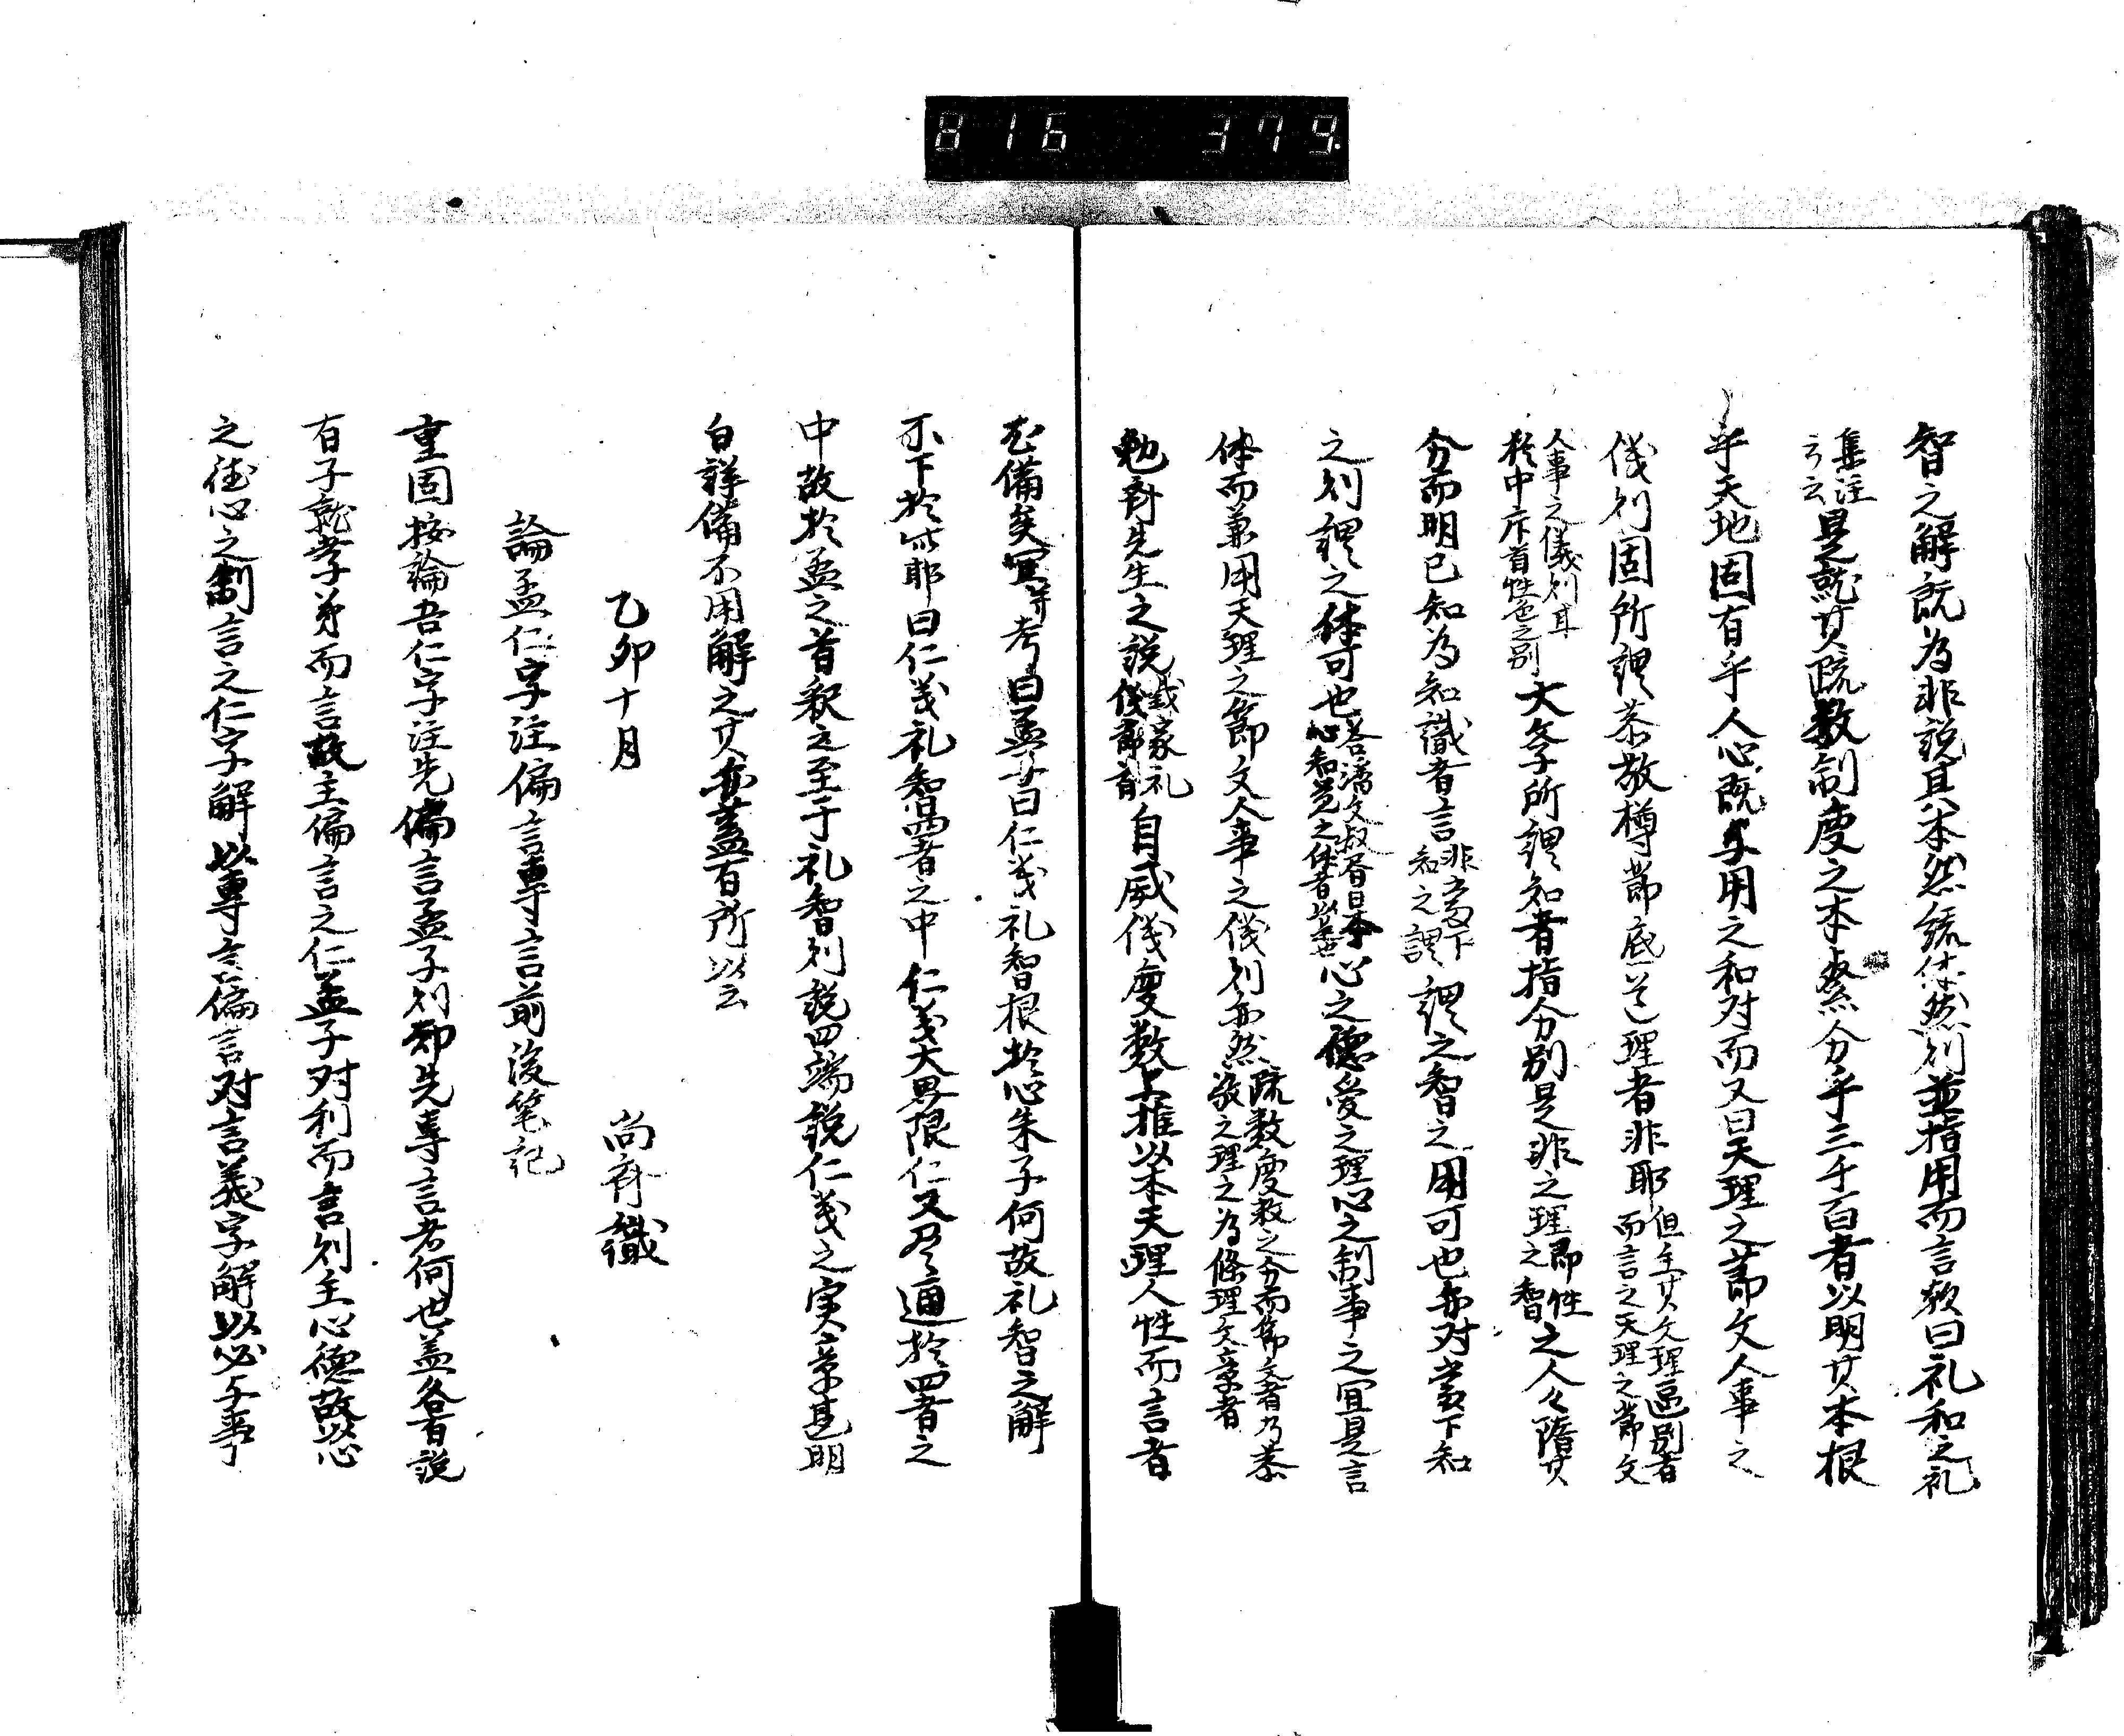 816 379
智之解既為非説具本然統体然則並指用而言欤曰礼和之礼
集注
云云是就其疏数制度之本蔡分乎三千百者以明其本根
乎天地固有乎人心既与用之和対而又曰天理之節文人事之
儀則固所謂恭敬樽節底道理者非耶但主其文理區別者
而言之天理之節文
人事之儀則耳
於中庠首性色之別大学所謂知者指分別是非之理即性
之智之人々隋其
分而明已知為知識者言非高下
知之謂謂之智之用可也亦対叢下知
之則謂之体可也答潘文叔書曰本
心知覚之体者以是心之徳愛之理心之制事之宜是言
体而兼用天理之節文人事之儀則亦然疏数度数之分而節文者乃恭
敬之理之為條理文章者
勉斉先生之説或家礼
儀節有自威儀度数上推以本天理人性而言者
尤備矣冝等考曰孟子曰仁義礼智根於心朱子何故礼智之解
不下於此耶曰仁義礼智四者之中仁義大界限仁又尽通於四者之
中故於孟之首釈之至于礼智則説四端説仁義之実章甚明
白詳備不用解之其亦蓋有所以云
乙卯十月 尚斉識
論孟仁字注偏言専言前後笔記
重固按論吾仁字注先偏言孟子則却先専言者何也蓋各有説
有子就孝弟而言故主偏言之仁孟子対利而言則主心徳故以心
之徳心之制言之仁字解以専言偏言対言義字解以必与事